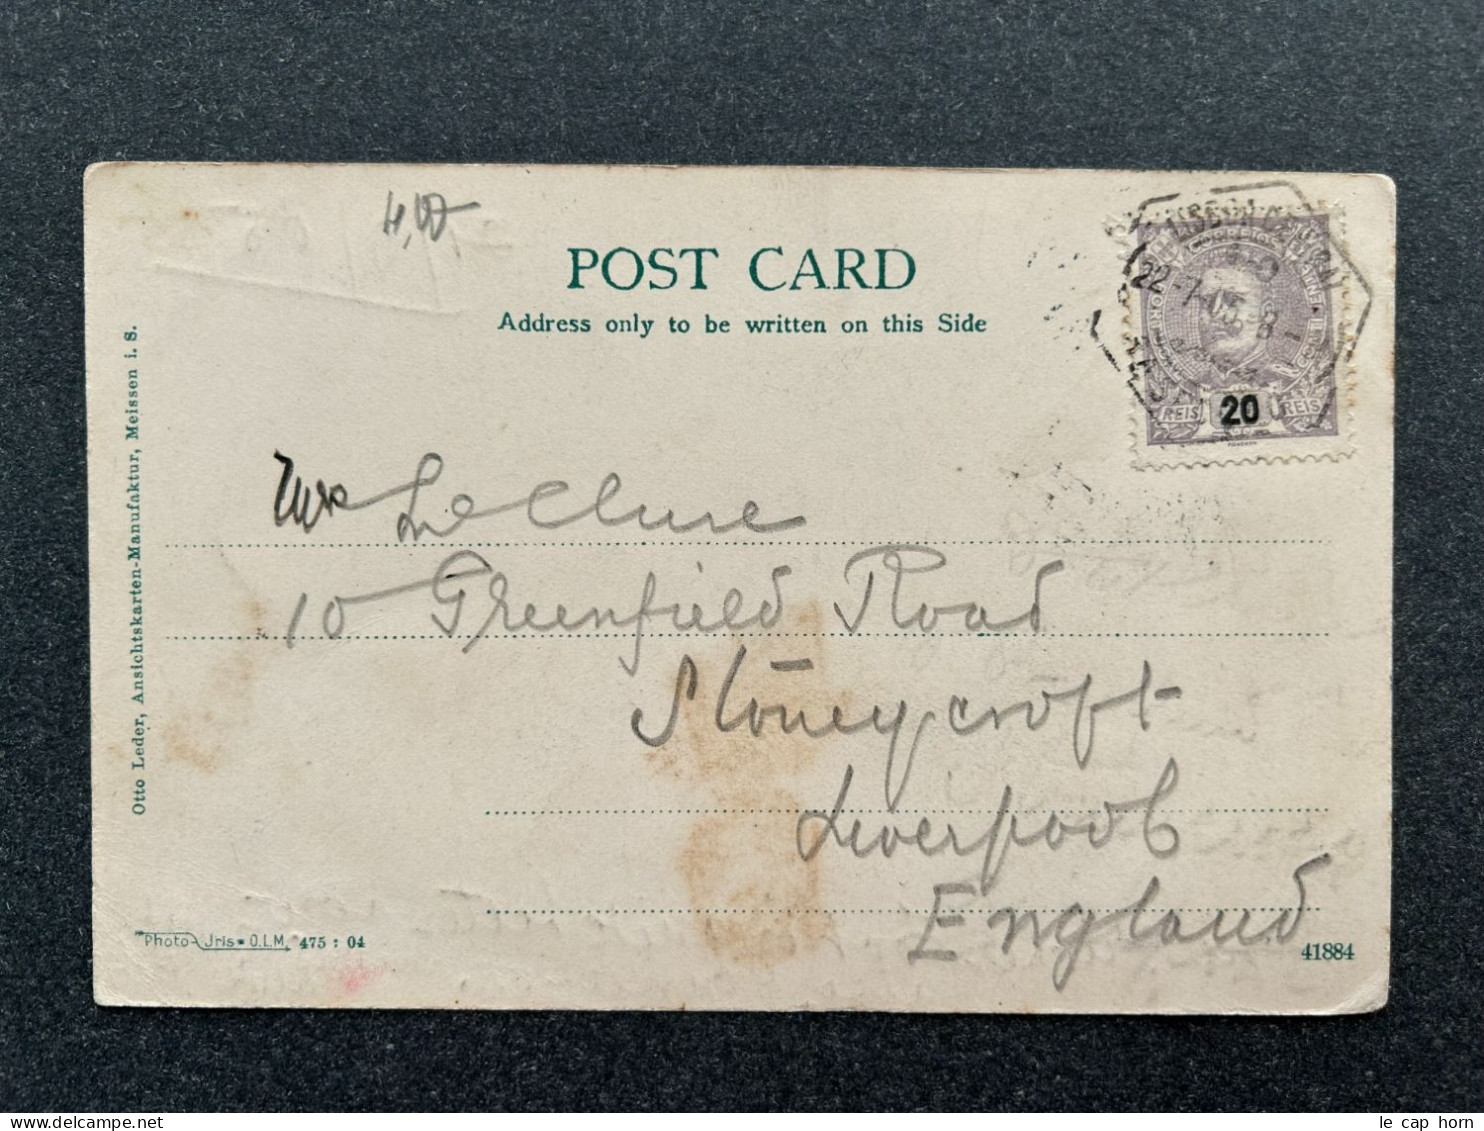 4,00
POST CARD
Address only to be written on this Side
LISBOA CENTRAL
22-7-05 8-
REIS 20 REIS
Mrs Le Clure
10 Greenfield Road
Stoneycroft
Liverpool
England
Otto Leder, Ansichtskarten-Manufaktur, Meissen i. S.
Photo-Jris-O.L.M. 475 : 04
41884
le cap horn